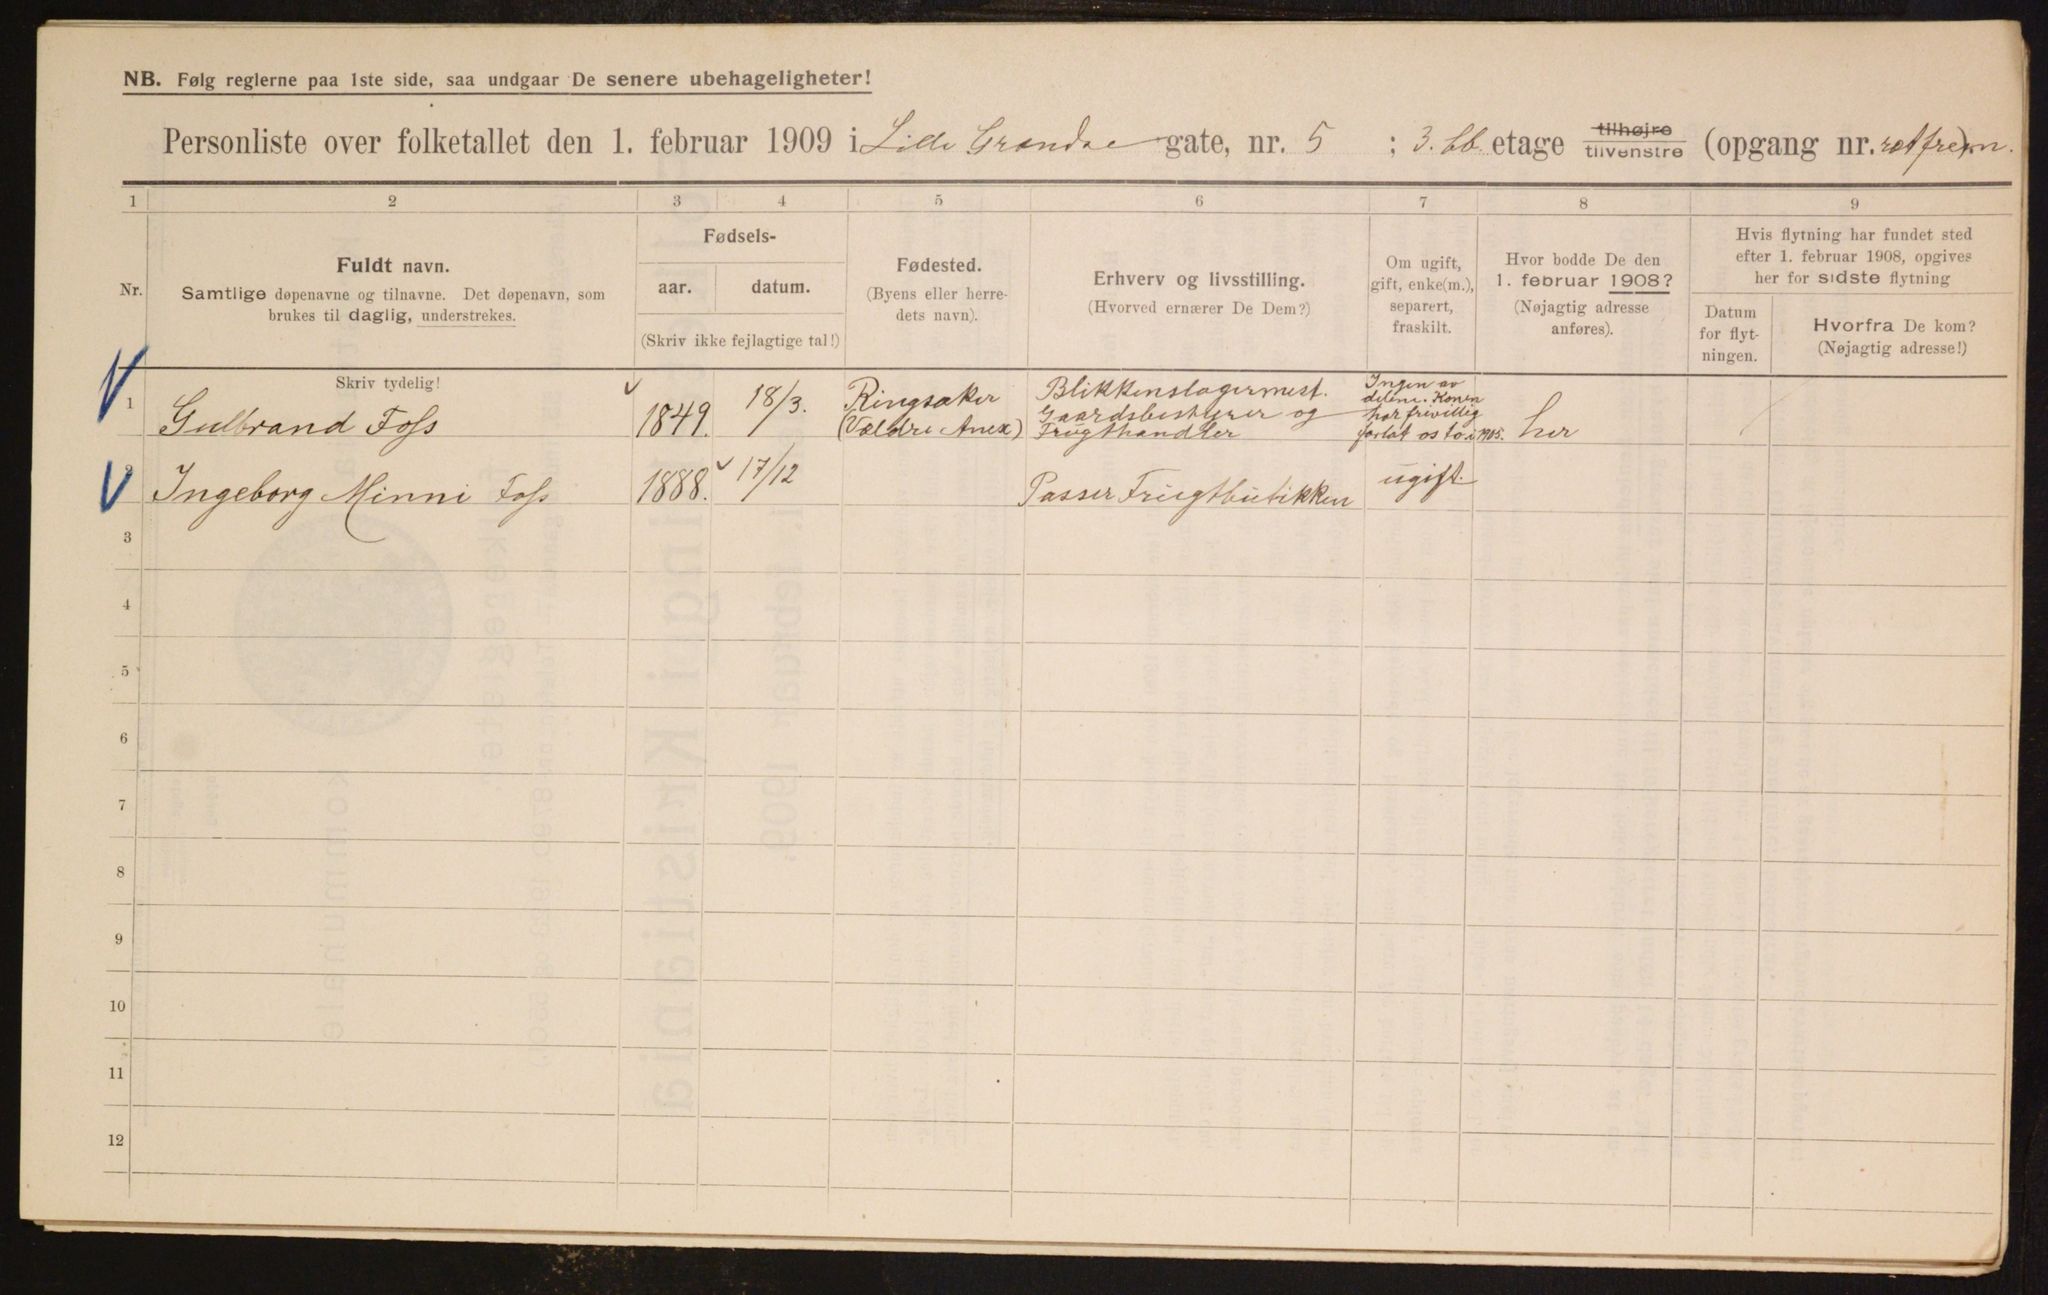 NB. Følg reglerne paa 1ste side, saa undgaar De senere ubehageligheter!
Personliste over folketallet den 1. februar 1909 i Lille Grændse gate, nr. 5 ; 3. etage tilhøjre tilvenstre (opgang nr. ret frem).
1 2 3 4 5 6 7 8 9
Nr.
Fuldt navn.
Samtlige døpenavne og tilnavne. Det døpenavn, som
brukes til daglig, understrekes.
Skriv tydelig!
Fødsels-
aar. datum.
(Skriv ikke fejlagtige tal!)
Fødested.
(Byens eller herre-
dets navn).
Erhverv og livsstilling.
(Hvorved ernærer De Dem?)
Om ugift,
gift, enke(m.),
separert,
fraskilt.
Hvor bodde De den
1. februar 1908?
(Nøjagtig adresse
anføres).
Hvis flytning har fundet sted
efter 1. februar 1908, opgives
her for sidste flytning
Datum
for flyt-
ningen.
Hvorfra De kom?
(Nøjagtig adresse!)
1 Gulbrand Foss 1849. 18/3. Ringsaker
(Vældre Anex)
Blikkenslagermest.
Gaardsbestyrer og
Frugthandler
Ingen av
delene. Konen
har frivillig
forlat os to i 1905.
her
2 Ingeborg Minni Foss 1888. 17/12 Passer Frugtbutikken ugift.
3
4
5
6
7
8
9
10
11
12